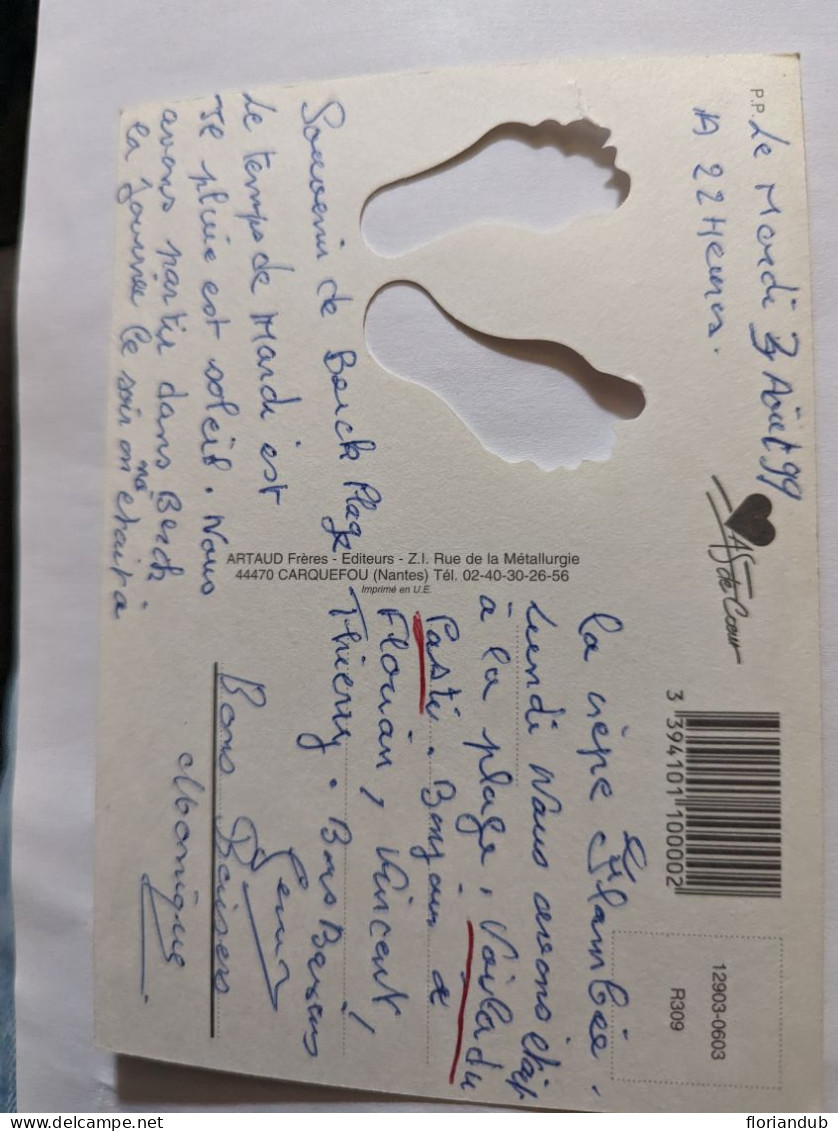 P.P.
Le Mardi 3 Août 99
A 22 Heures.
Souvenir de Berck Plage
Le temps de Mardi est
Te pluie est soleil. Nous
avons partie dans Berck
la journée le soir on
etait à
la crèpe Flambée.
Lundi Nous avons étét
à la plage, Voila du
Pasti. Bonjour a
Florian, Vincent,
Thierry. Bons Baisers
Bons Baisers
Monique
As de Cœur
ARTAUD Frères - Editeurs - Z.I. Rue de la Métallurgie
44470 CARQUEFOU (Nantes) Tél. 02-40-30-26-56
Imprimé en U.E.
3 394101 100002
12903-0603
R309
floriandub